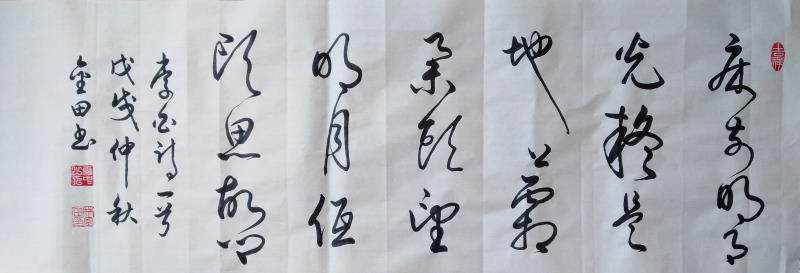 床前明月
光疑是
地上霜
舉頭望
明月低
頭思故鄉
李白詩一首
戊戌仲秋
金田書